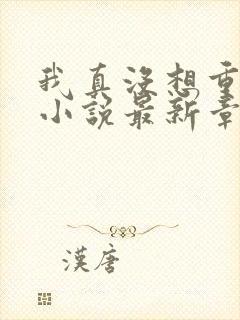 我真没想重
小说最新章
漢唐